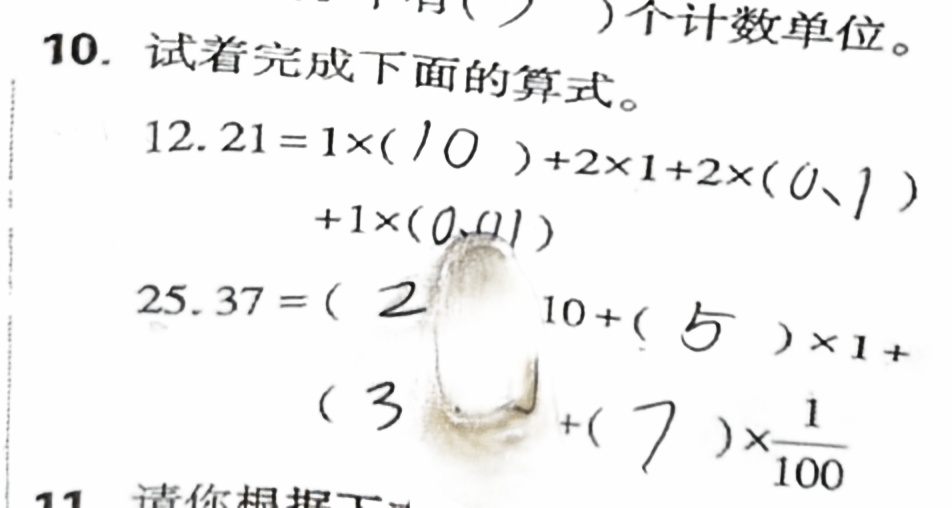 ( ) )个计数单位。
10. 试着完成下面的算式。
12.21=1×(10)+2×1+2×(0、1)
+1×(0、01)
25.37=(2 10+(5)×1+
(3 +(7)×1/100
11. 请你根据下